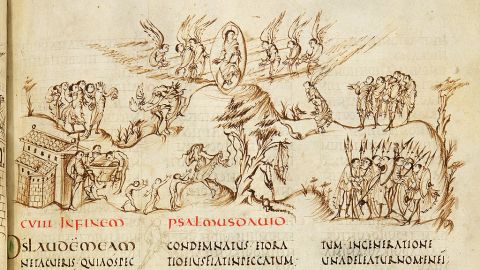 CVIII INFINEM PSALMUSDAVID
DSLAUDĒMEAM
NETACUERIS QUIAOSPEC
CONDEMNATUS ETORA
TIOEIUSFIATINPECCATUM
TUM INGENERATIONE
UNADELEATURNOMENEI